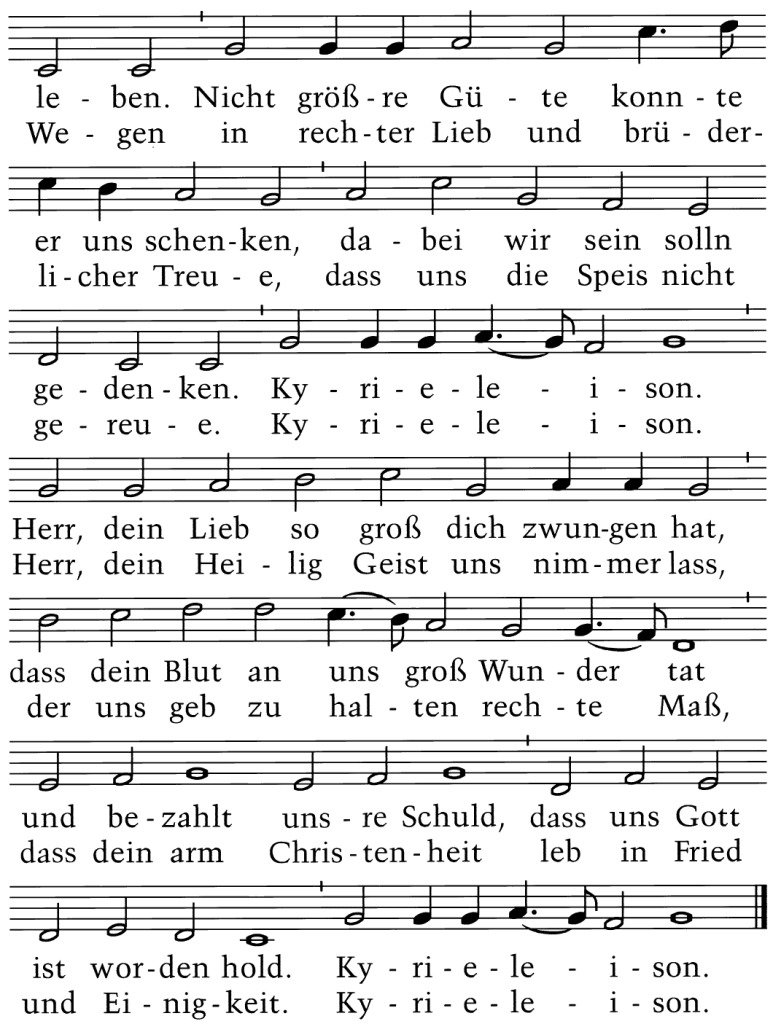 le - ben. Nicht größ - re Gü - te konn - te
We - gen in rech - ter Lieb und brü - der-
er uns schen - ken, da - bei wir sein solln
li - cher Treu - e, dass uns die Speis nicht
ge - den - ken. Ky - ri - e - le - i - son.
ge - reu - e. Ky - ri - e - le - i - son.
Herr, dein Lieb so groß dich zwun - gen hat,
Herr, dein Hei - lig Geist uns nim - mer lass,
dass dein Blut an uns groß Wun - der tat
der uns geb zu hal - ten rech - te Maß,
und be - zahlt uns - re Schuld, dass uns Gott
dass dein arm Chris - ten - heit leb in Fried
ist wor - den hold. Ky - ri - e - le - i - son.
und Ei - nig - keit. Ky - ri - e - le - i - son.